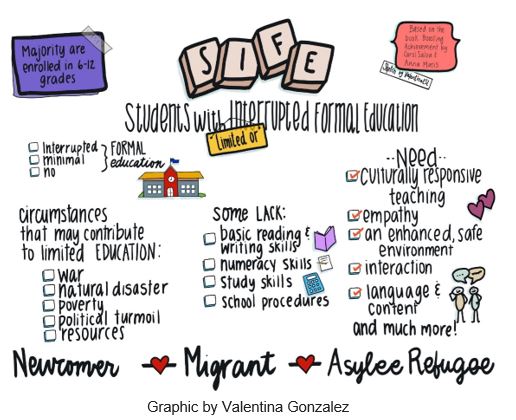 Majority are
enrolled in 6-12
grades
SIFE
Based on the
book Boosting
Achievement by
Carol Salva &
Anna Matis
Students with Interrupted Formal Education
Limited or
Interrupted
minimal
no
FORMAL
education
circumstances
that may contribute
to limited EDUCATION:
war
natural disaster
poverty
political turmoil
resources
Some LACK:
basic reading &
writing skills
numeracy skills
Study skills
School procedures
--Need--
culturally responsive
teaching
empathy
an enhanced, safe
environment
interaction
language &
content
and much more!
Newcomer Migrant Asylee Refugee
Graphic by Valentina Gonzalez